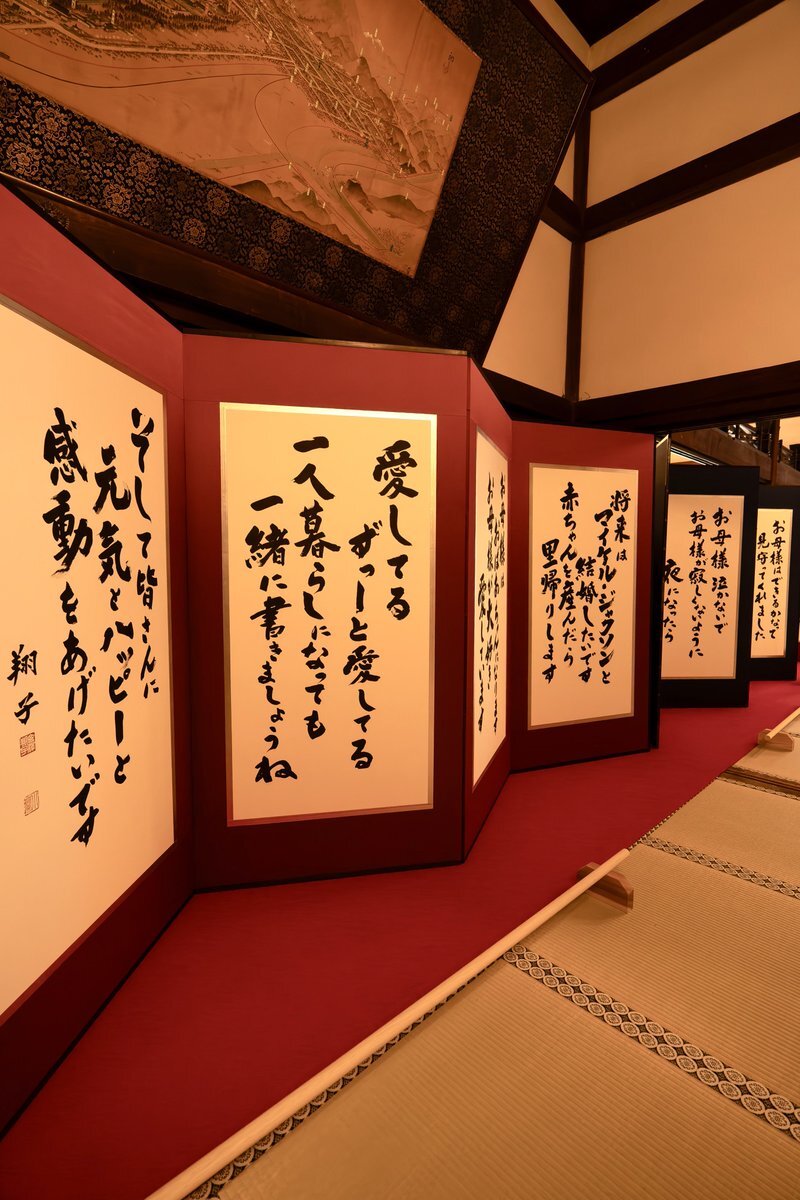 お母様はできるまで
見守ってくれました
お母様 泣かないで
お母様が寂しくないように
夜になったら
将来は
マイケル・ジャクソンと
結婚したいです
赤ちゃんを産んだら
里帰りします
お母様は
おばあちゃんになります
お母様が大好き
愛しています
愛してる
ずっーと愛してる
一人暮らしになっても
一緒に書きましょうね
そして皆さんに
元気とハッピーと
感動をあげたいです
翔子